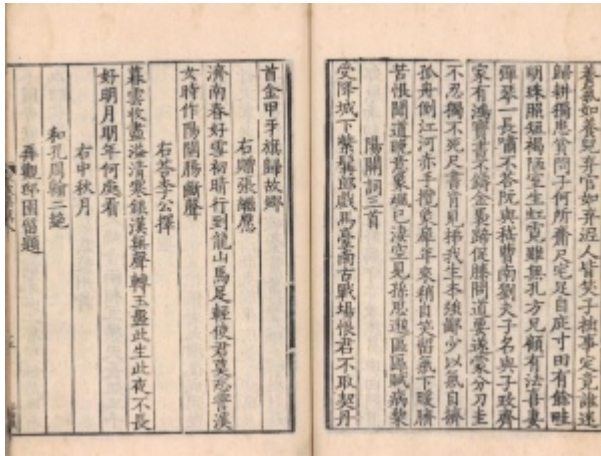 養氣如養兒弃官如弃泥人皆笑子拙事定竟誰迷
歸耕獨患貧問子何所齎尺宅足自庇寸田有餘畦
明珠照短褐陋室生虹霓雖無孔方兄顧有法喜妻
彈琴一長嘯不答阮與嵇曹南劉夫子名與子政齊
家有鴻寶書不鑄金褭蹄促膝問道要遂蒙分刀圭
不忍獨不死尺書肯見梯我生本强鄙少以氣自擠
孤舟倒江河赤手攬象犀年來稍自笑留氣下暖臍
苦恨聞道晚意象颯已淒空見孫思邈區區賦病棃
陽關詞三首
受降城下紫髯郎戲馬臺南古戰場恨君不取契丹
首金甲牙旗歸故鄉
右贈張繼愿
濟南春好雪初晴行到龍山馬足輕使君莫忘霅溪
女時作陽關腸斷聲
右荅李公擇
暮雲收盡溢清寒銀漢無聲轉玉盤此生此夜不長
好明月明年何處看
右中秋月
和孔周翰二絶
再觀邸園留題